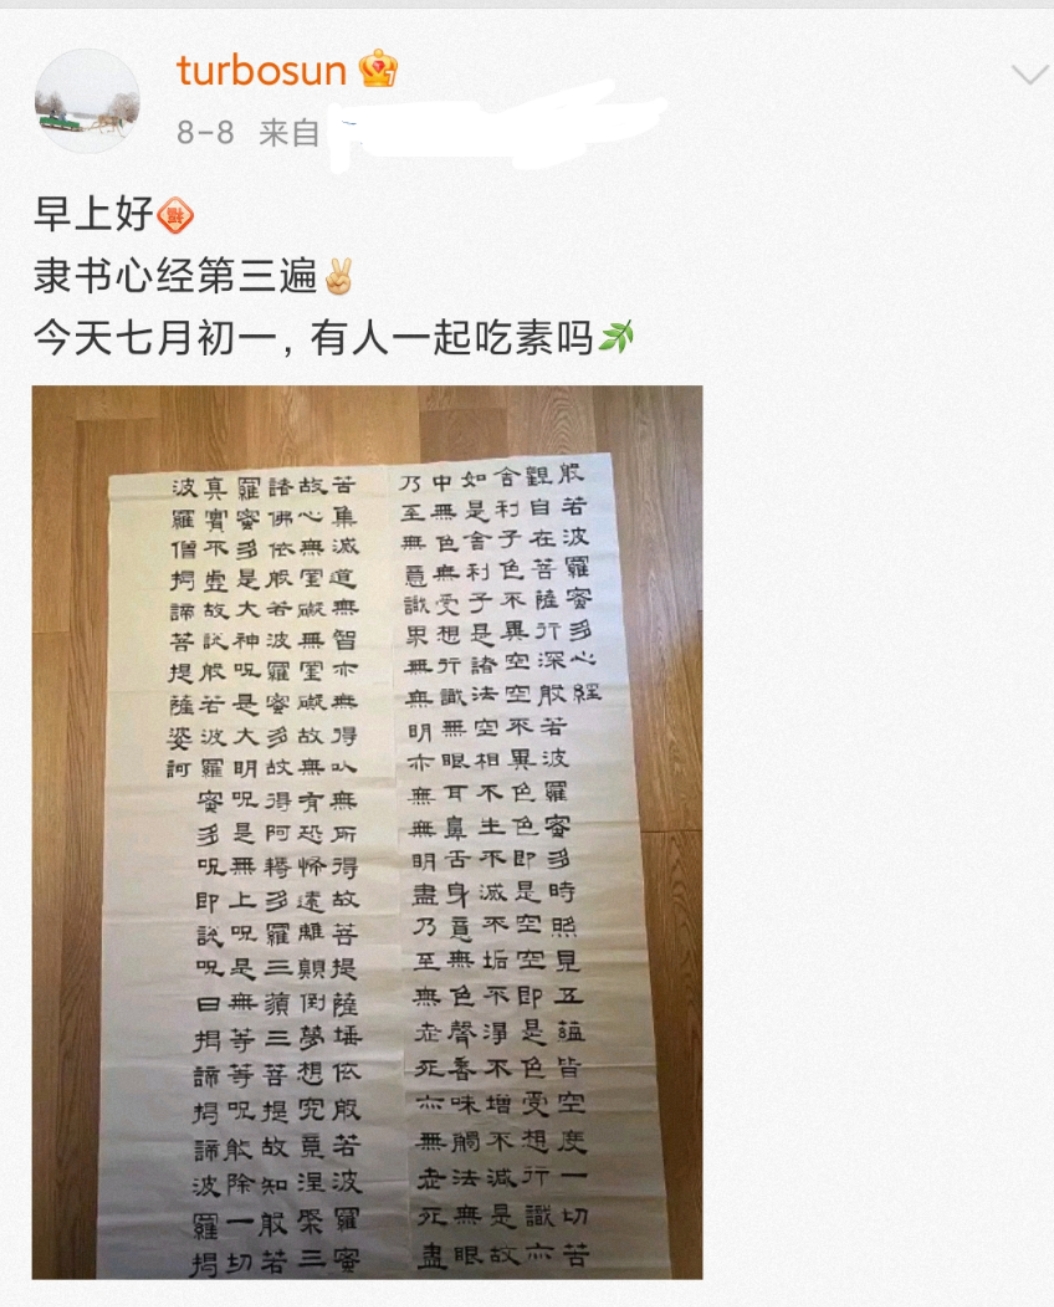 turbosun
8-8 来自
早上好
隶书心经第三遍
今天七月初一，有人一起吃素吗
般若波羅蜜多心經
觀自在菩薩行深般若波羅蜜多時照見五蘊皆空度一切苦
舍利子色不異空空不異色色即是空空即是色受想行識亦
如是舍利子是諸法空相不生不滅不垢不淨不增不減是故
中無色無受想行識無眼耳鼻舌身意無色聲香味觸法無眼
乃至無意識界無無明亦無無明盡乃至無老死亦無老死盡
苦集滅道無智亦無得以無所得故菩提薩埵依般若波羅蜜
故心無罣礙無罣礙故無有恐怖遠離顛倒夢想究竟涅槃三
諸佛依般若波羅蜜多故得阿耨多羅三藐三菩提故知般若
羅蜜多是大神呪是大明呪是無上呪是無等等呪能除一切
真實不虛故說般若波羅蜜多呪即說呪曰揭諦揭諦波羅揭
波羅僧揭諦菩提薩婆訶